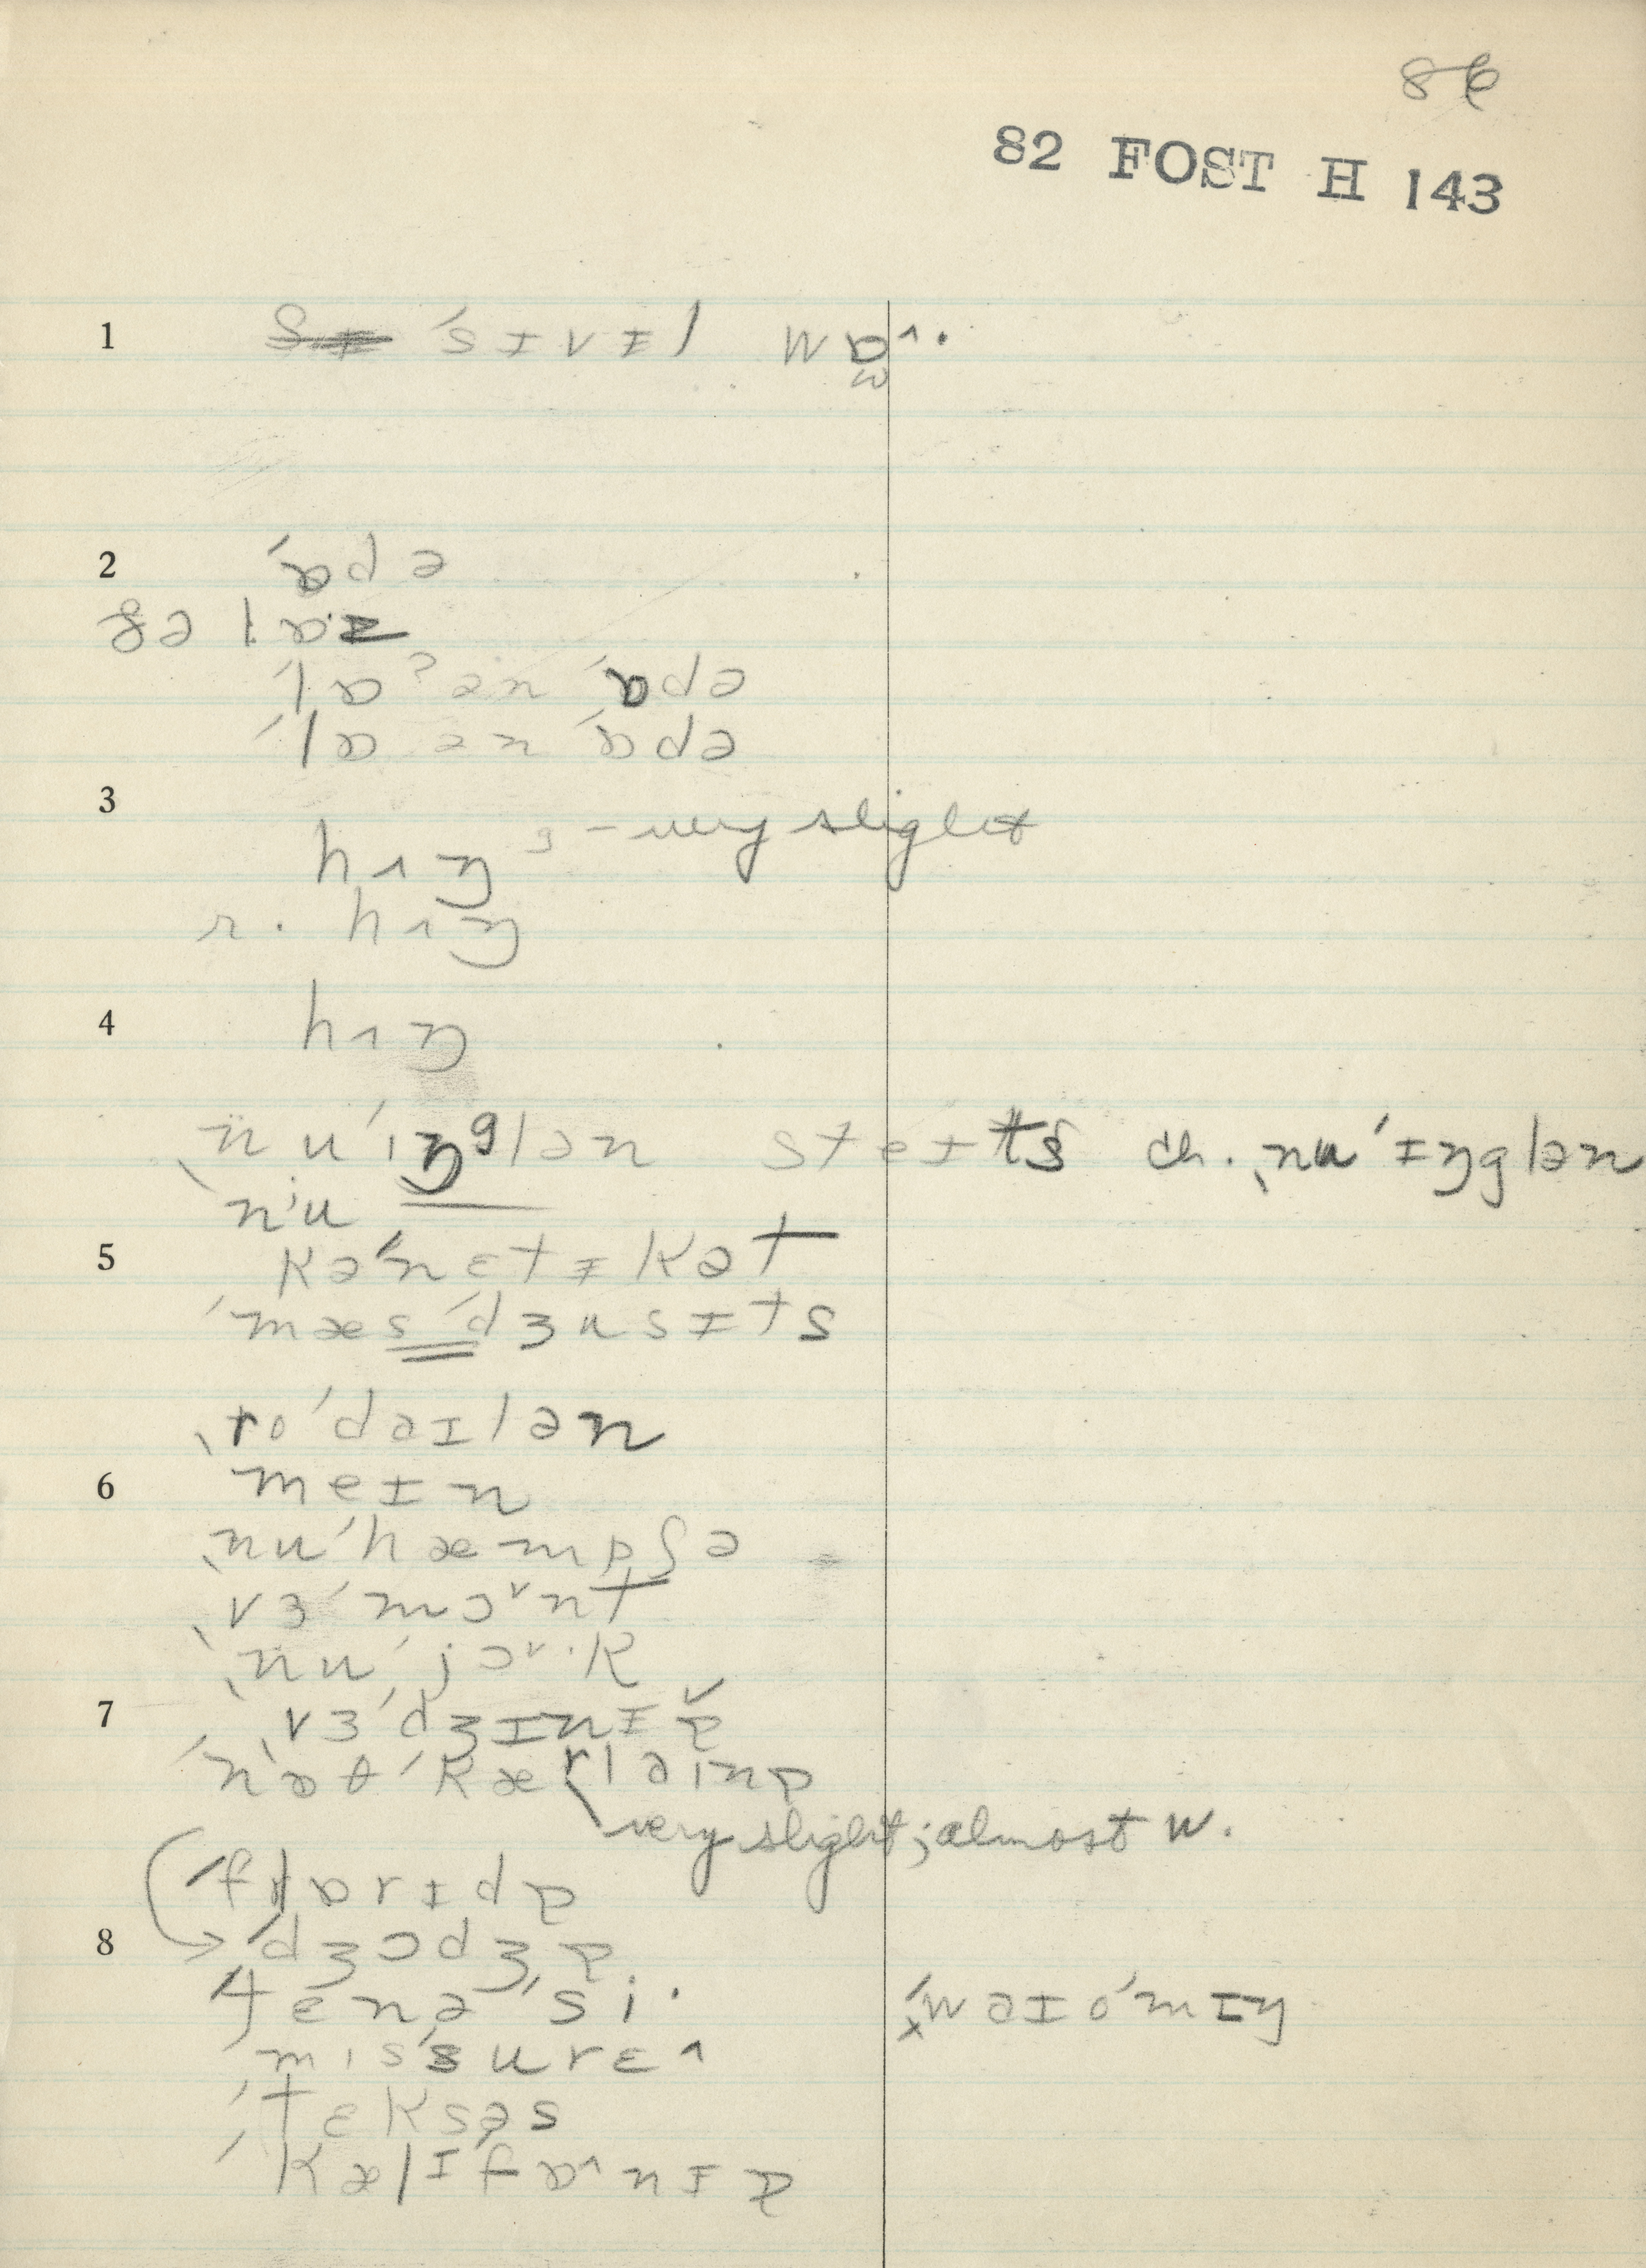 86
82 FOST H 143
1 ˈsɪvɪl wɒ^.
w
2 ˈɒdə
ðə lɒz
ˈlɒʔ ən ˈɒdə
ˈlɒ ən ˈɒdə
3
hɪŋ ᵍ – very slight
r. hɪŋ
4 hɪŋ
ˌnuˈɪŋᵍlən steɪts ch. ˌnuˈɪŋglən
nʲu
5 kəˈnɛtɪkət
ˈmæsˈdʒusɪts
ˌroˈdaɪlən
6 meɪn
ˌnuˈhæmpʃə
ˌvɜˈmɔᵛnt
ˌnuˈjɔᵛ·k
7 ˌvɜˈdʒɪnɪɐ
ˈnɒθˈkærlaɪnɐ
very slight; almost w.
ˈflɒrɪdɐ
8 ˈdʒɔdʒɐ
ˌtɛnəˈsi· ˈwaɪoˈmɪŋ
mɪsˈsurɛ^
ˈtɛksəs
ˈkælɪfɒ^nɪɐ